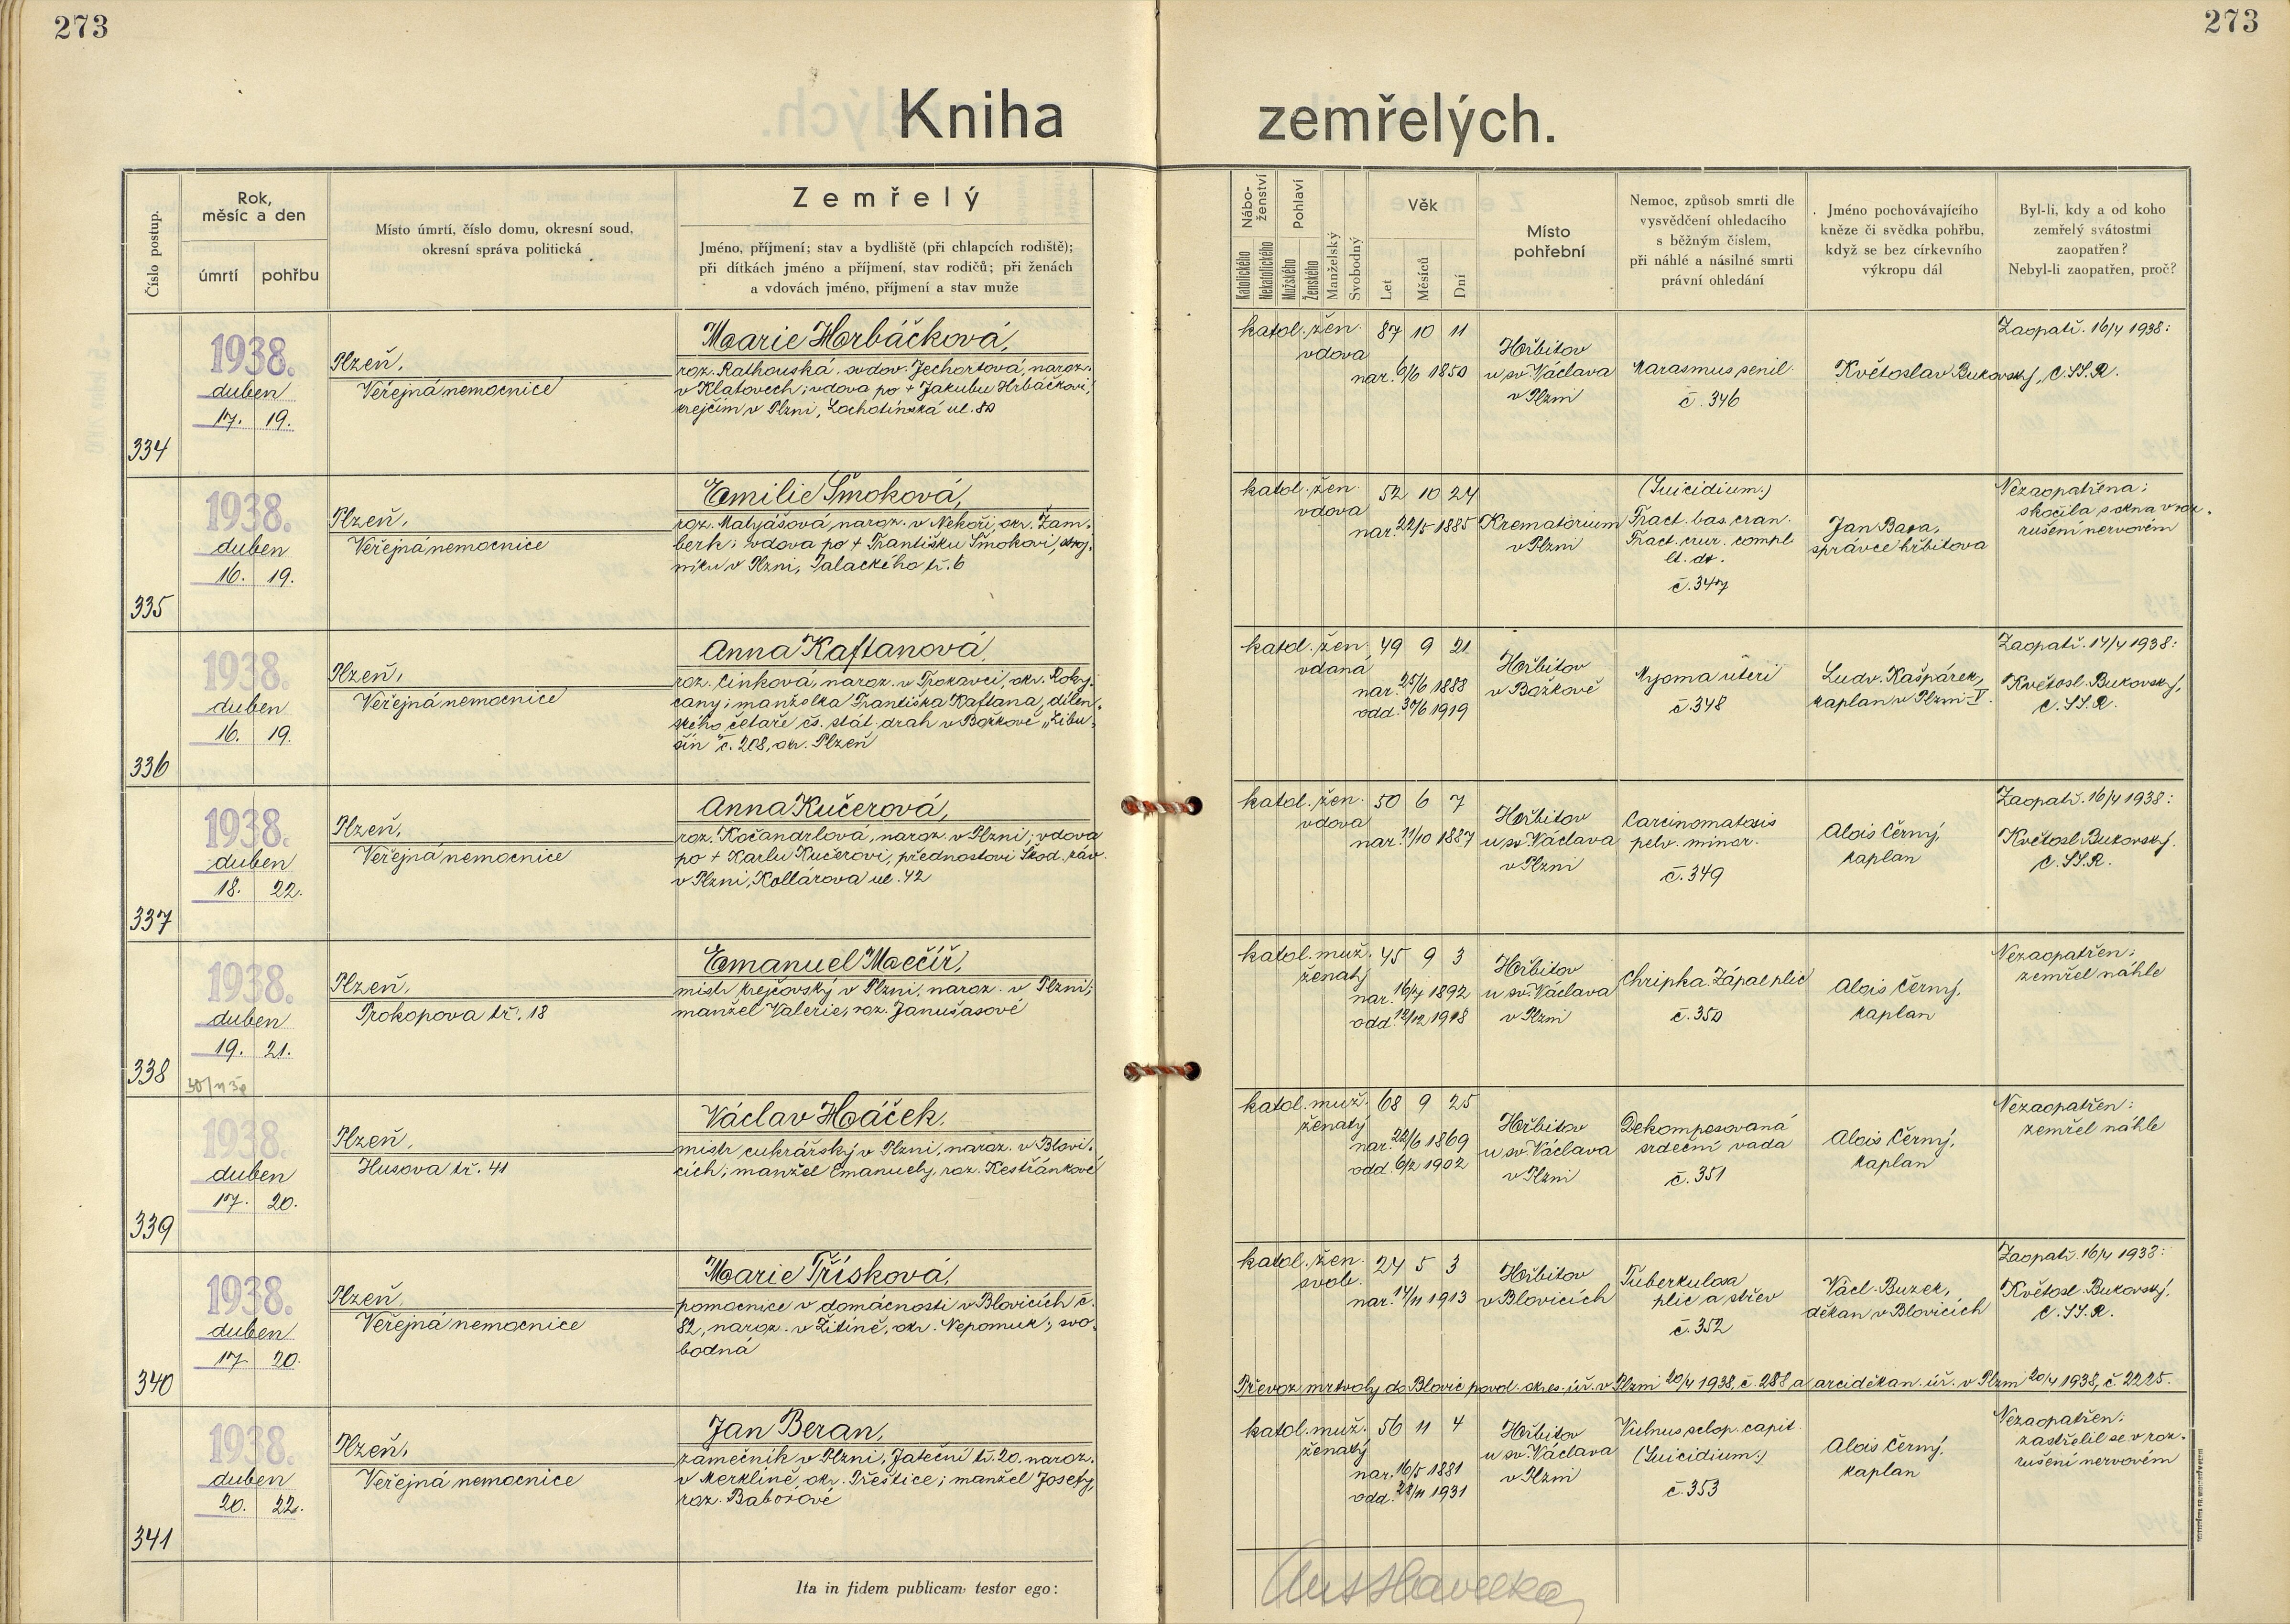 273
273
Kniha zemřelých.
Číslo postup.
Rok,
měsíc a den
úmrtí
pohřbu
Místo úmrtí, číslo domu, okresní soud,
okresní správa politická
Zemřelý
Jméno, příjmení; stav a bydliště (při chlapcích rodiště);
při dítkách jméno a příjmení, stav rodičů; při ženách
a vdovách jméno, příjmení a stav muže
Nábo-
ženství
Katolického
Nekatolického
Pohlaví
Mužského
Ženského
Manželský
Svobodný
Věk
Let
Měsíců
Dní
Místo
pohřební
Nemoc, způsob smrti dle
vysvědčení ohledacího
s běžným číslem,
při náhlé a násilné smrti
právní ohledání
Jméno pochovávajícího
kněze či svědka pohřbu,
když se bez církevního
výkropu dál
Byl-li, kdy a od koho
zemřelý svátostmi
zaopatřen?
Nebyl-li zaopatřen, proč?
334
1938.
duben
17. 19.
Plzeň,
Veřejná nemocnice
Marie Hrbáčková,
roz. Rathouská, ovdov. Jechortová, naroz.
v Klatovech; vdova po + Jakubu Hrbáčkovi,
krejčím v Plzni, Lochotínská ul. 80
katol. žen. 87 10 11
vdova
nar. 6/6 1850
Hřbitov
u sv. Václava
v Plzni
Marasmus senil.
č. 346
Květoslav Bukovský, C.SS.R.
Zaopatř. 16/4 1938:
335
1938.
duben
16. 19.
Plzeň,
Veřejná nemocnice
Emilie Smoková,
roz. Matyášová, naroz. v Nekoři, okr. Žam-
berk; vdova po + Františku Smokovi, stroj-
níku v Plzni, Palackého tř. 6
katol. žen. 52 10 24
vdova
nar. 22/5 1885
Krematorium
v Plzni
(Suicidium.)
Fract. bas. cran.
Fract. crur. compl.
lt. dx.
č. 347
Jan Basa,
správce hřbitova
Nezaopatřena:
skočila s okna v roz-
rušení nervovém
336
1938.
duben
16. 19.
Plzeň,
Veřejná nemocnice
Anna Kaftanová,
roz. Cinková, naroz. v Prokavci, okr. Roky-
cany; manželka Františka Kaftana, dílen-
ského četaře čs. stát. drah v Božkově „Libu-
šín" č. 208, okr. Plzeň
katol. žen. 49 9 21
vdaná
nar. 25/6 1888
odd. 30/6 1919
Hřbitov
v Božkově
Myoma uteri
č. 348
Ludv. Kašpárek,
kaplan v Plzni-V.
Zaopatř. 14/4 1938:
Květosl. Bukovský,
C.SS.R.
337
1938.
duben
18. 22.
Plzeň,
Veřejná nemocnice
Anna Kučerová,
roz. Kočandrlová, naroz. v Plzni; vdova
po + Karlu Kučerovi, přednostovi Škod. záv.
v Plzni, Kollárova ul. 42
katol. žen. 50 6 7
vdova
nar. 11/10 1887
Hřbitov
u sv. Václava
v Plzni
Carcinomatosis
pelv. minor.
č. 349
Alois Černý,
kaplan
Zaopatř. 16/4 1938:
Květosl. Bukovský,
C.SS.R.
338
1938.
duben
19. 21.
Plzeň,
Prokopova tř. 18
Emanuel Mečíř,
mistr krejčovský v Plzni, naroz. v Plzni;
manžel Valerie, roz. Janušasové
katol. muž. 45 9 3
ženatý
nar. 16/7 1892
odd. 12/12 1918
Hřbitov
u sv. Václava
v Plzni
Chripka. Zápal plic
č. 350
Alois Černý,
kaplan
Nezaopatřen;
zemřel náhle
339
1938.
duben
17. 20.
Plzeň,
Husova tř. 41
Václav Háček,
mistr cukrářský v Plzni, naroz. v Blovi-
cích; manžel Emanuely, roz. Kestřánkové
katol. muž. 68 9 25
ženatý
nar. 22/6 1869
odd. 6/2 1902
Hřbitov
u sv. Václava
v Plzni
Dekomposovaná
srdeční vada
č. 351
Alois Černý,
kaplan
Nezaopatřen:
zemřel náhle
340
1938.
duben
17. 20.
Plzeň,
Veřejná nemocnice
Marie Třísková,
pomocnice v domácnosti v Blovicích č.
82, naroz. v Žitíně, okr. Nepomuk; svo-
bodná
katol. žen. 24 5 3
svob.
nar. 14/11 1913
Hřbitov
v Blovicích
Tuberkulosa
plic a střev
č. 352
Václ. Buzek,
děkan v Blovicích
Zaopatř. 16/4 1938:
Květosl. Bukovský,
C.SS.R.
Převoz mrtvoly do Blovic povol. okres. úř. v Plzni 20/4 1938, č. 288 a arciděkan. úř. v Plzni 20/4 1938, č. 2225.
341
1938.
duben
20. 22.
Plzeň,
Veřejná nemocnice
Jan Beran,
zámečník v Plzni, Jateční tř. 20, naroz.
v Merklíně, okr. Přeštice; manžel Josefy,
roz. Baborové
katol. muž. 56 11 4
ženatý
nar. 16/5 1881
odd. 28/11 1931
Hřbitov
u sv. Václava
v Plzni
Vulnus sclop. capit.
(Suicidium.)
č. 353
Alois Černý,
kaplan
Nezaopatřen:
zastřelil se v roz-
rušení nervovém
Ita in fidem publicam testor ego: